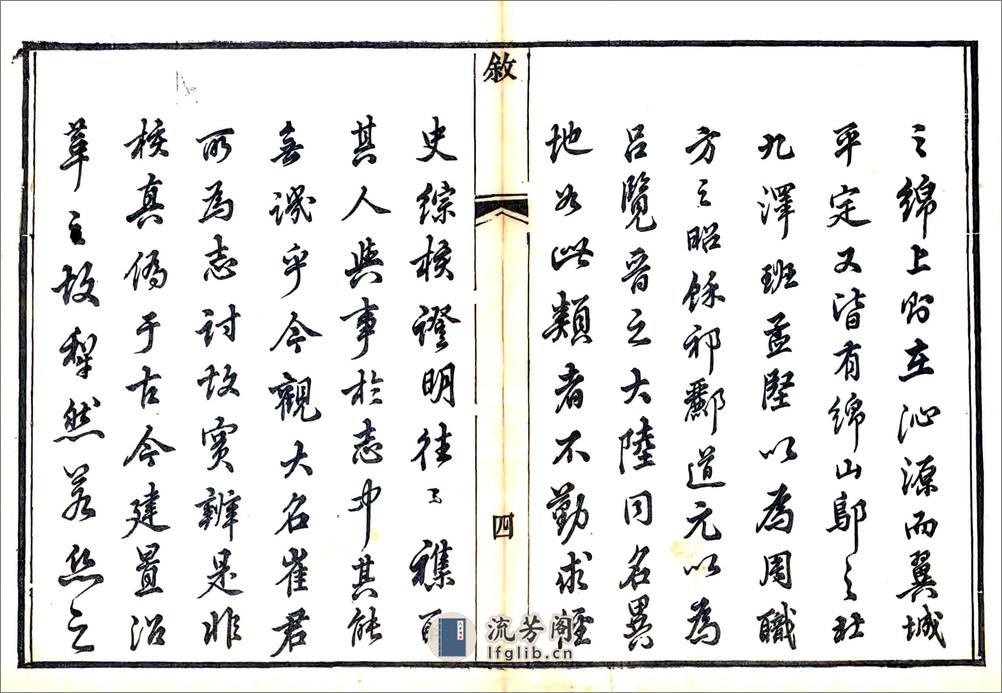 之綿上則在沁源而翼城
平定又皆有綿山鄔之
九澤班孟堅以為周職
方之昭餘祁酈道元以為
呂覽晉之大陸同名異
地如此類者不勤求經
敘
四
史綜核證明往々
其人與事於志中其能
無譏乎今觀大名崔君
所為志討故實辨是非
核真偽于古今建置沿
革之故犂然之
流芳阁
lfglib.cn